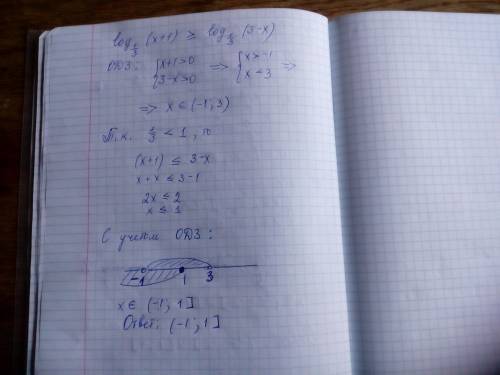 log_{1/3} (x+1) ≥ log_{1/3} (3-x)
ОДЗ: { x+1>0 ; 3-x>0 => { x>-1 ; x<3 =>
=> x ∈ (-1; 3)
Т.к. 1/3 < 1, то
(x+1) ≤ 3-x
x+x ≤ 3-1
2x ≤ 2
x ≤ 1
С учетом ОДЗ:
-1 1 3
x ∈ (-1; 1]
Ответ: (-1; 1]